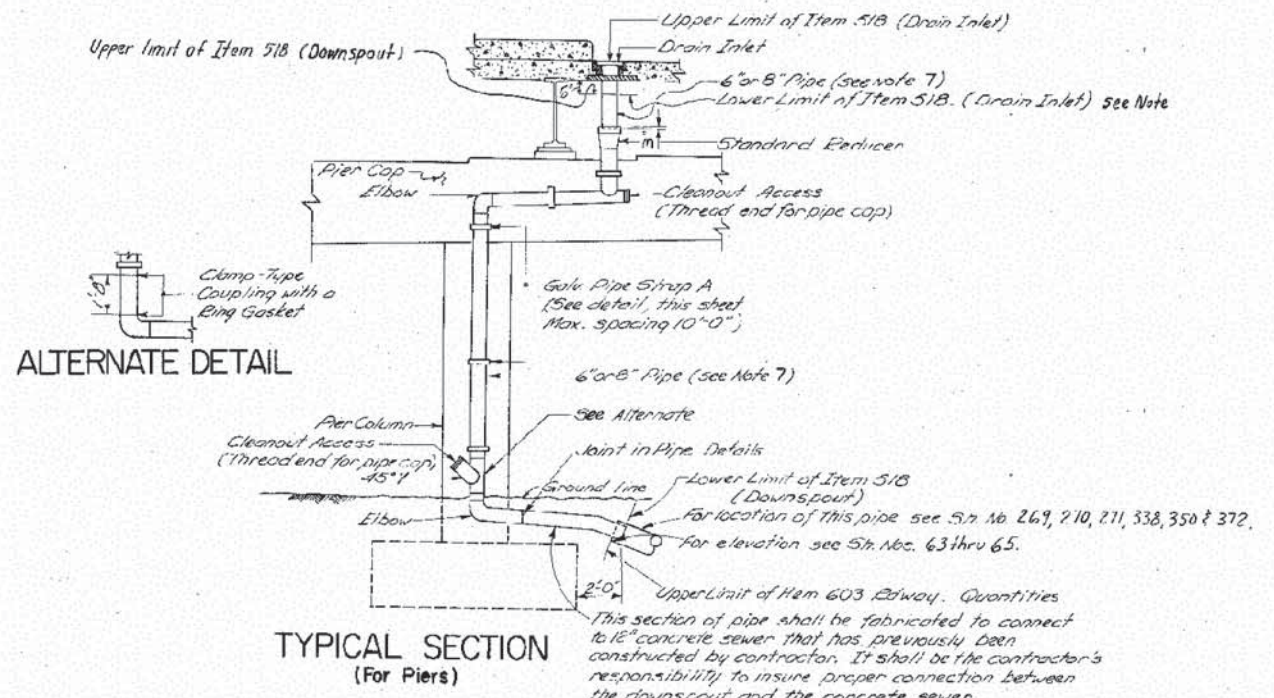 Upper Limit of Item 518 (Drain Inlet)
Upper limit of Item 518 (Downspout)
Drain Inlet
6" or 8" Pipe (see note 7)
6"
Lower Limit of Item 518. (Drain Inlet) see Note
3"
Standard Reducer
Pier Cap
Elbow
Cleanout Access
(Thread end for pipe cap)
Clamp-Type
Coupling with a
Ring Gasket
1'-8"
ALTERNATE DETAIL
Galv. Pipe Strap A
(See detail, this sheet
Max. spacing 10'-0")
6" or 8" Pipe (see Note 7)
Pier Column
See Alternate
Cleanout Access
(Thread end for pipe cap)
45°
Joint in Pipe Details
Ground line
Lower Limit of Item 518
(Downspout)
Elbow
For location of this pipe see Sh. No. 269, 270, 271, 338, 350 & 372.
For elevation see Sh. Nos. 63 thru 65.
2'-0"
Upper Limit of Item 603 Rdway. Quantities
This section of pipe shall be fabricated to connect
to 12" concrete sewer that has previously been
constructed by contractor. It shall be the contractor's
responsibility to insure proper connection between
the downspout and the concrete sewer
TYPICAL SECTION
(For Piers)